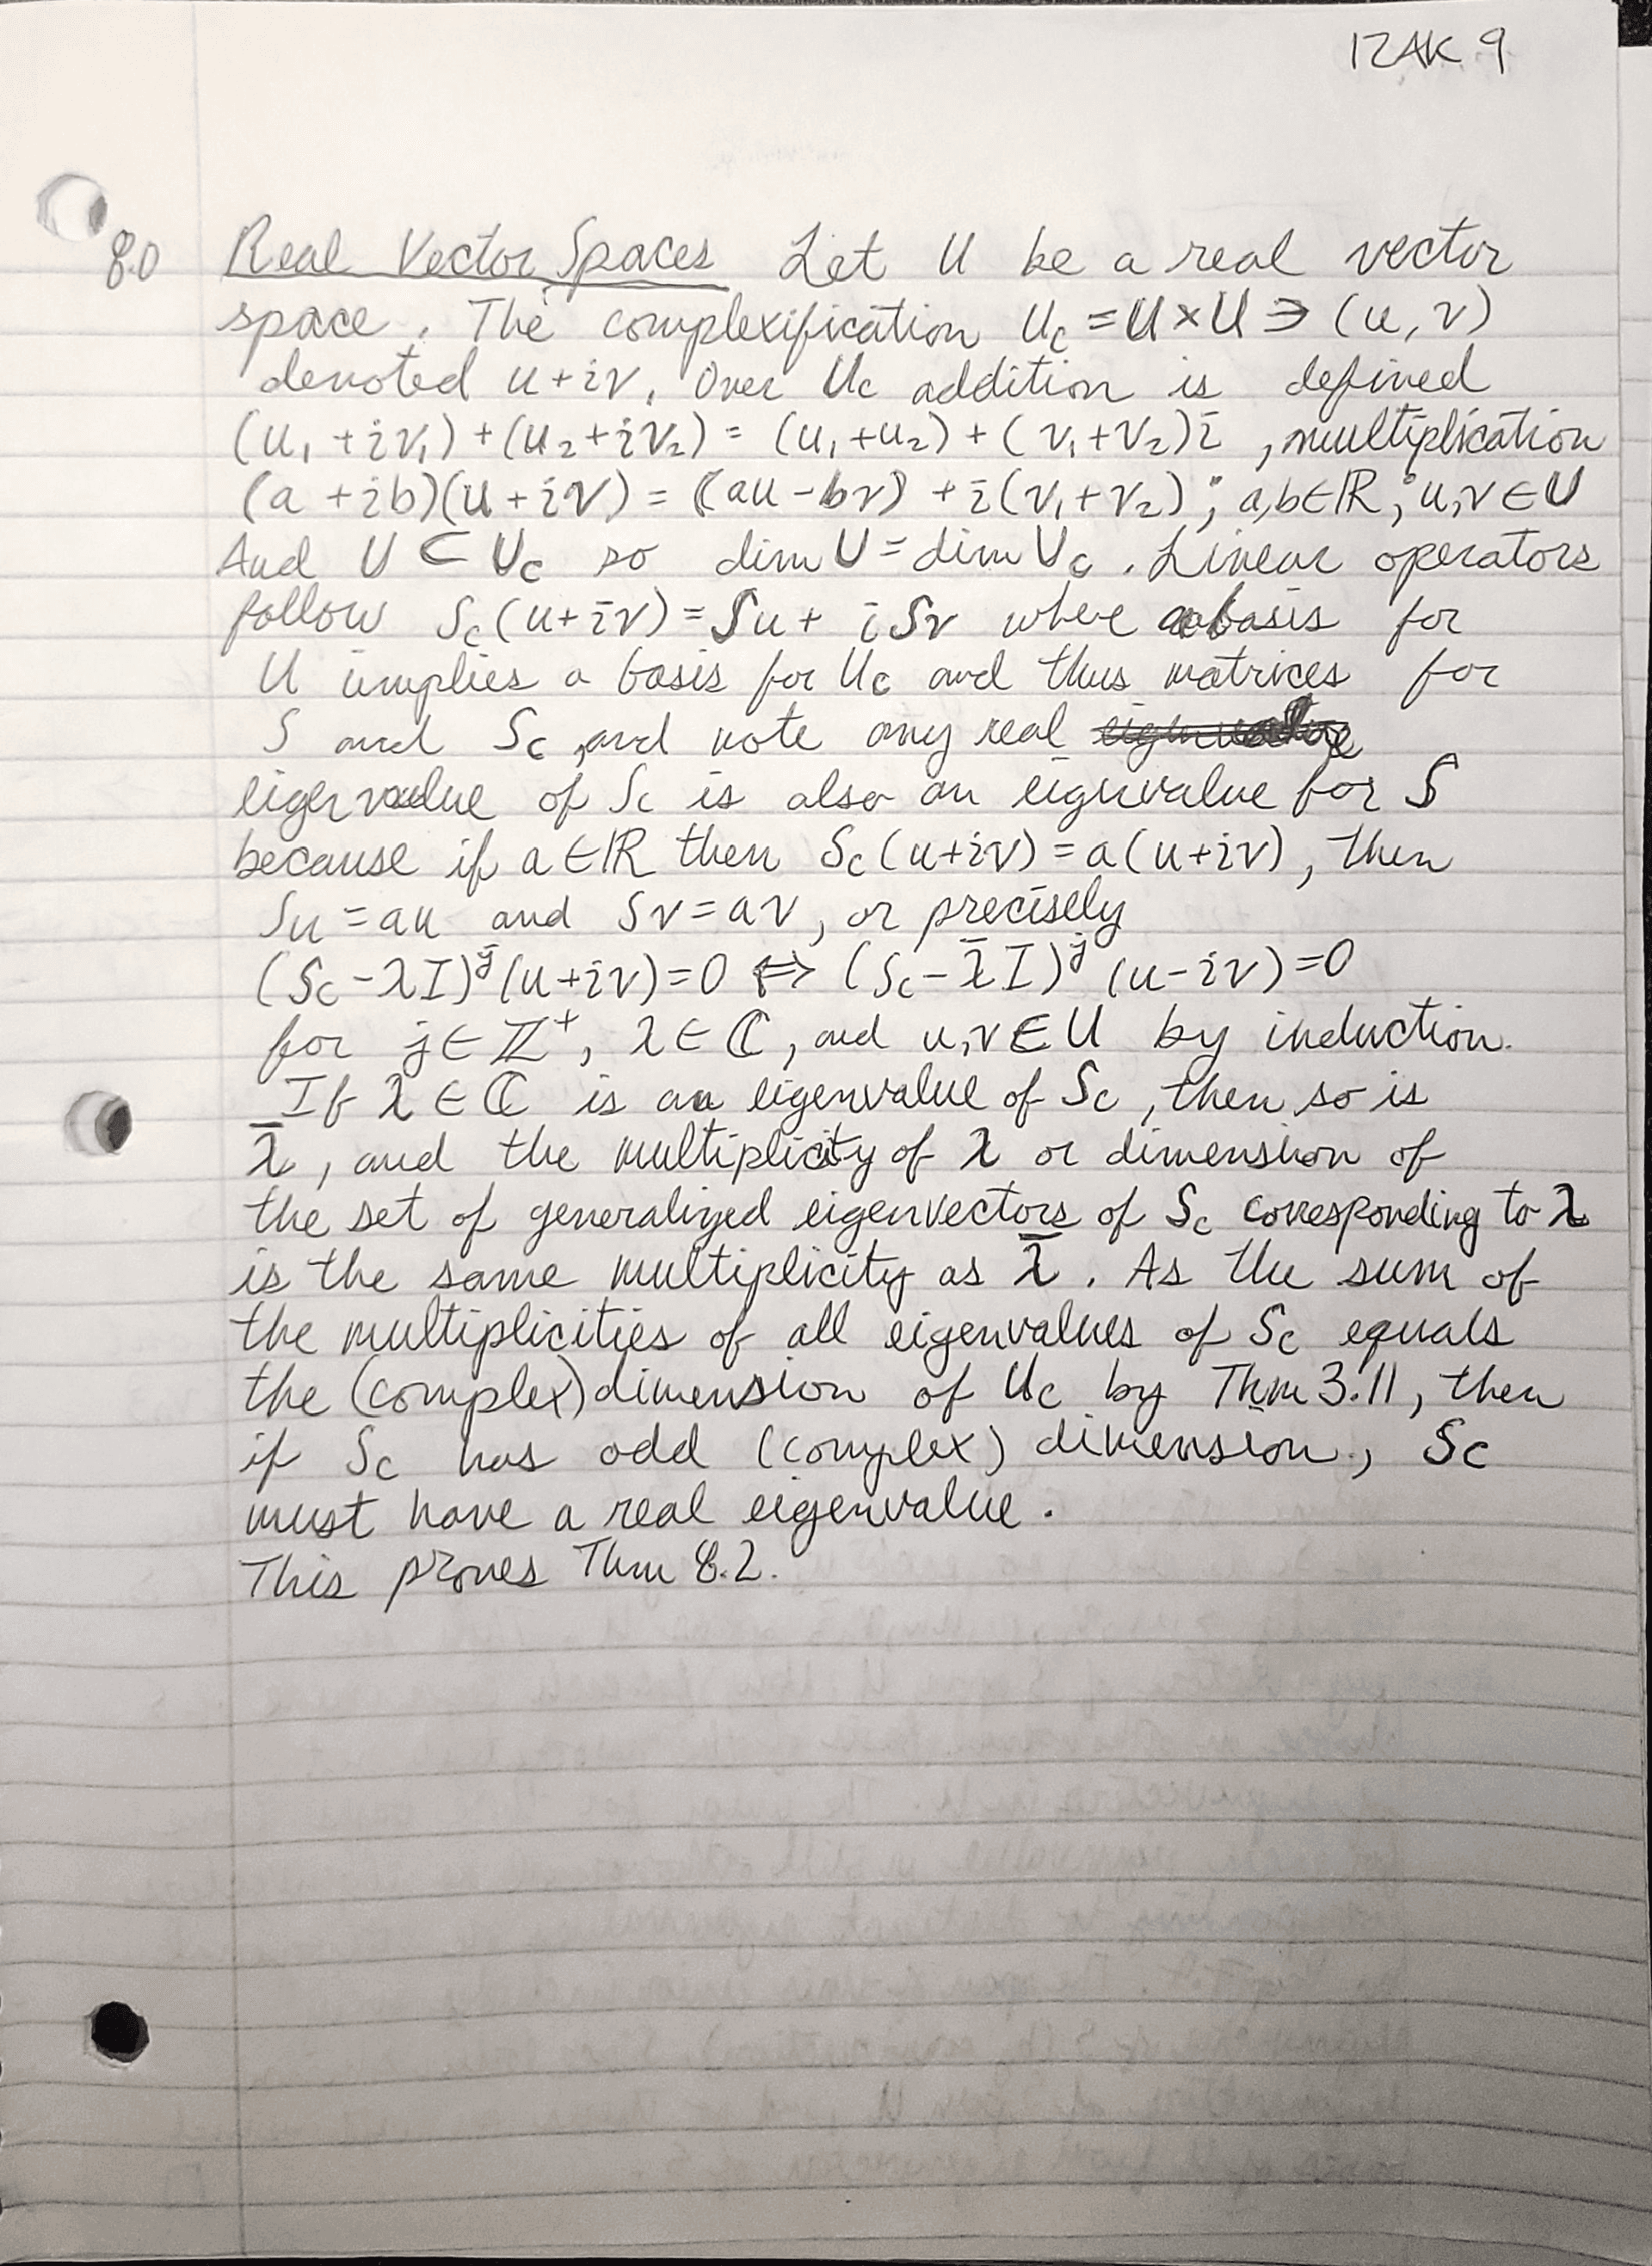 IZAK 9
8.0 Real Vector Spaces Let U be a real vector
space. The complexification U_C = U × U ∋ (u, v)
denoted u + iv. Over U_C addition is defined
(u₁ + iv₁) + (u₂ + iv₂) = (u₁ + u₂) + (v₁ + v₂)i , multiplication
(a + ib)(u + iv) = (au - bv) + i(v₁ + v₂) ; a,b ∈ ℝ ; u,v ∈ U
And U ⊂ U_C so dim U = dim U_C . Linear operators
follow S_C(u + iv) = Su + iSv where a basis for
U implies a basis for U_C and thus matrices for
S and S_C, and note any real
eigenvalue of S_C is also an eignvalue for S
because if a ∈ ℝ then S_C(u + iv) = a(u + iv), then
Su = au and Sv = av, or precisely
(S_C - λI)^j (u + iv) = 0 ⟺ (S_C - λ̄I)^j (u - iv) = 0
for j ∈ ℤ⁺, λ ∈ ℂ, and u,v ∈ U by induction.
If λ ∈ ℂ is an eigenvalue of S_C, then so is
λ̄, and the multiplicity of λ or dimension of
the set of generalized eigenvectors of S_C corresponding to λ
is the same multiplicity as λ̄. As the sum of
the multiplicities of all eigenvalues of S_C equals
the (complex) dimension of U_C by Thm 3.11, then
if S_C has odd (complex) dimension, S_C
must have a real eigenvalue.
This proves Thm 8.2.